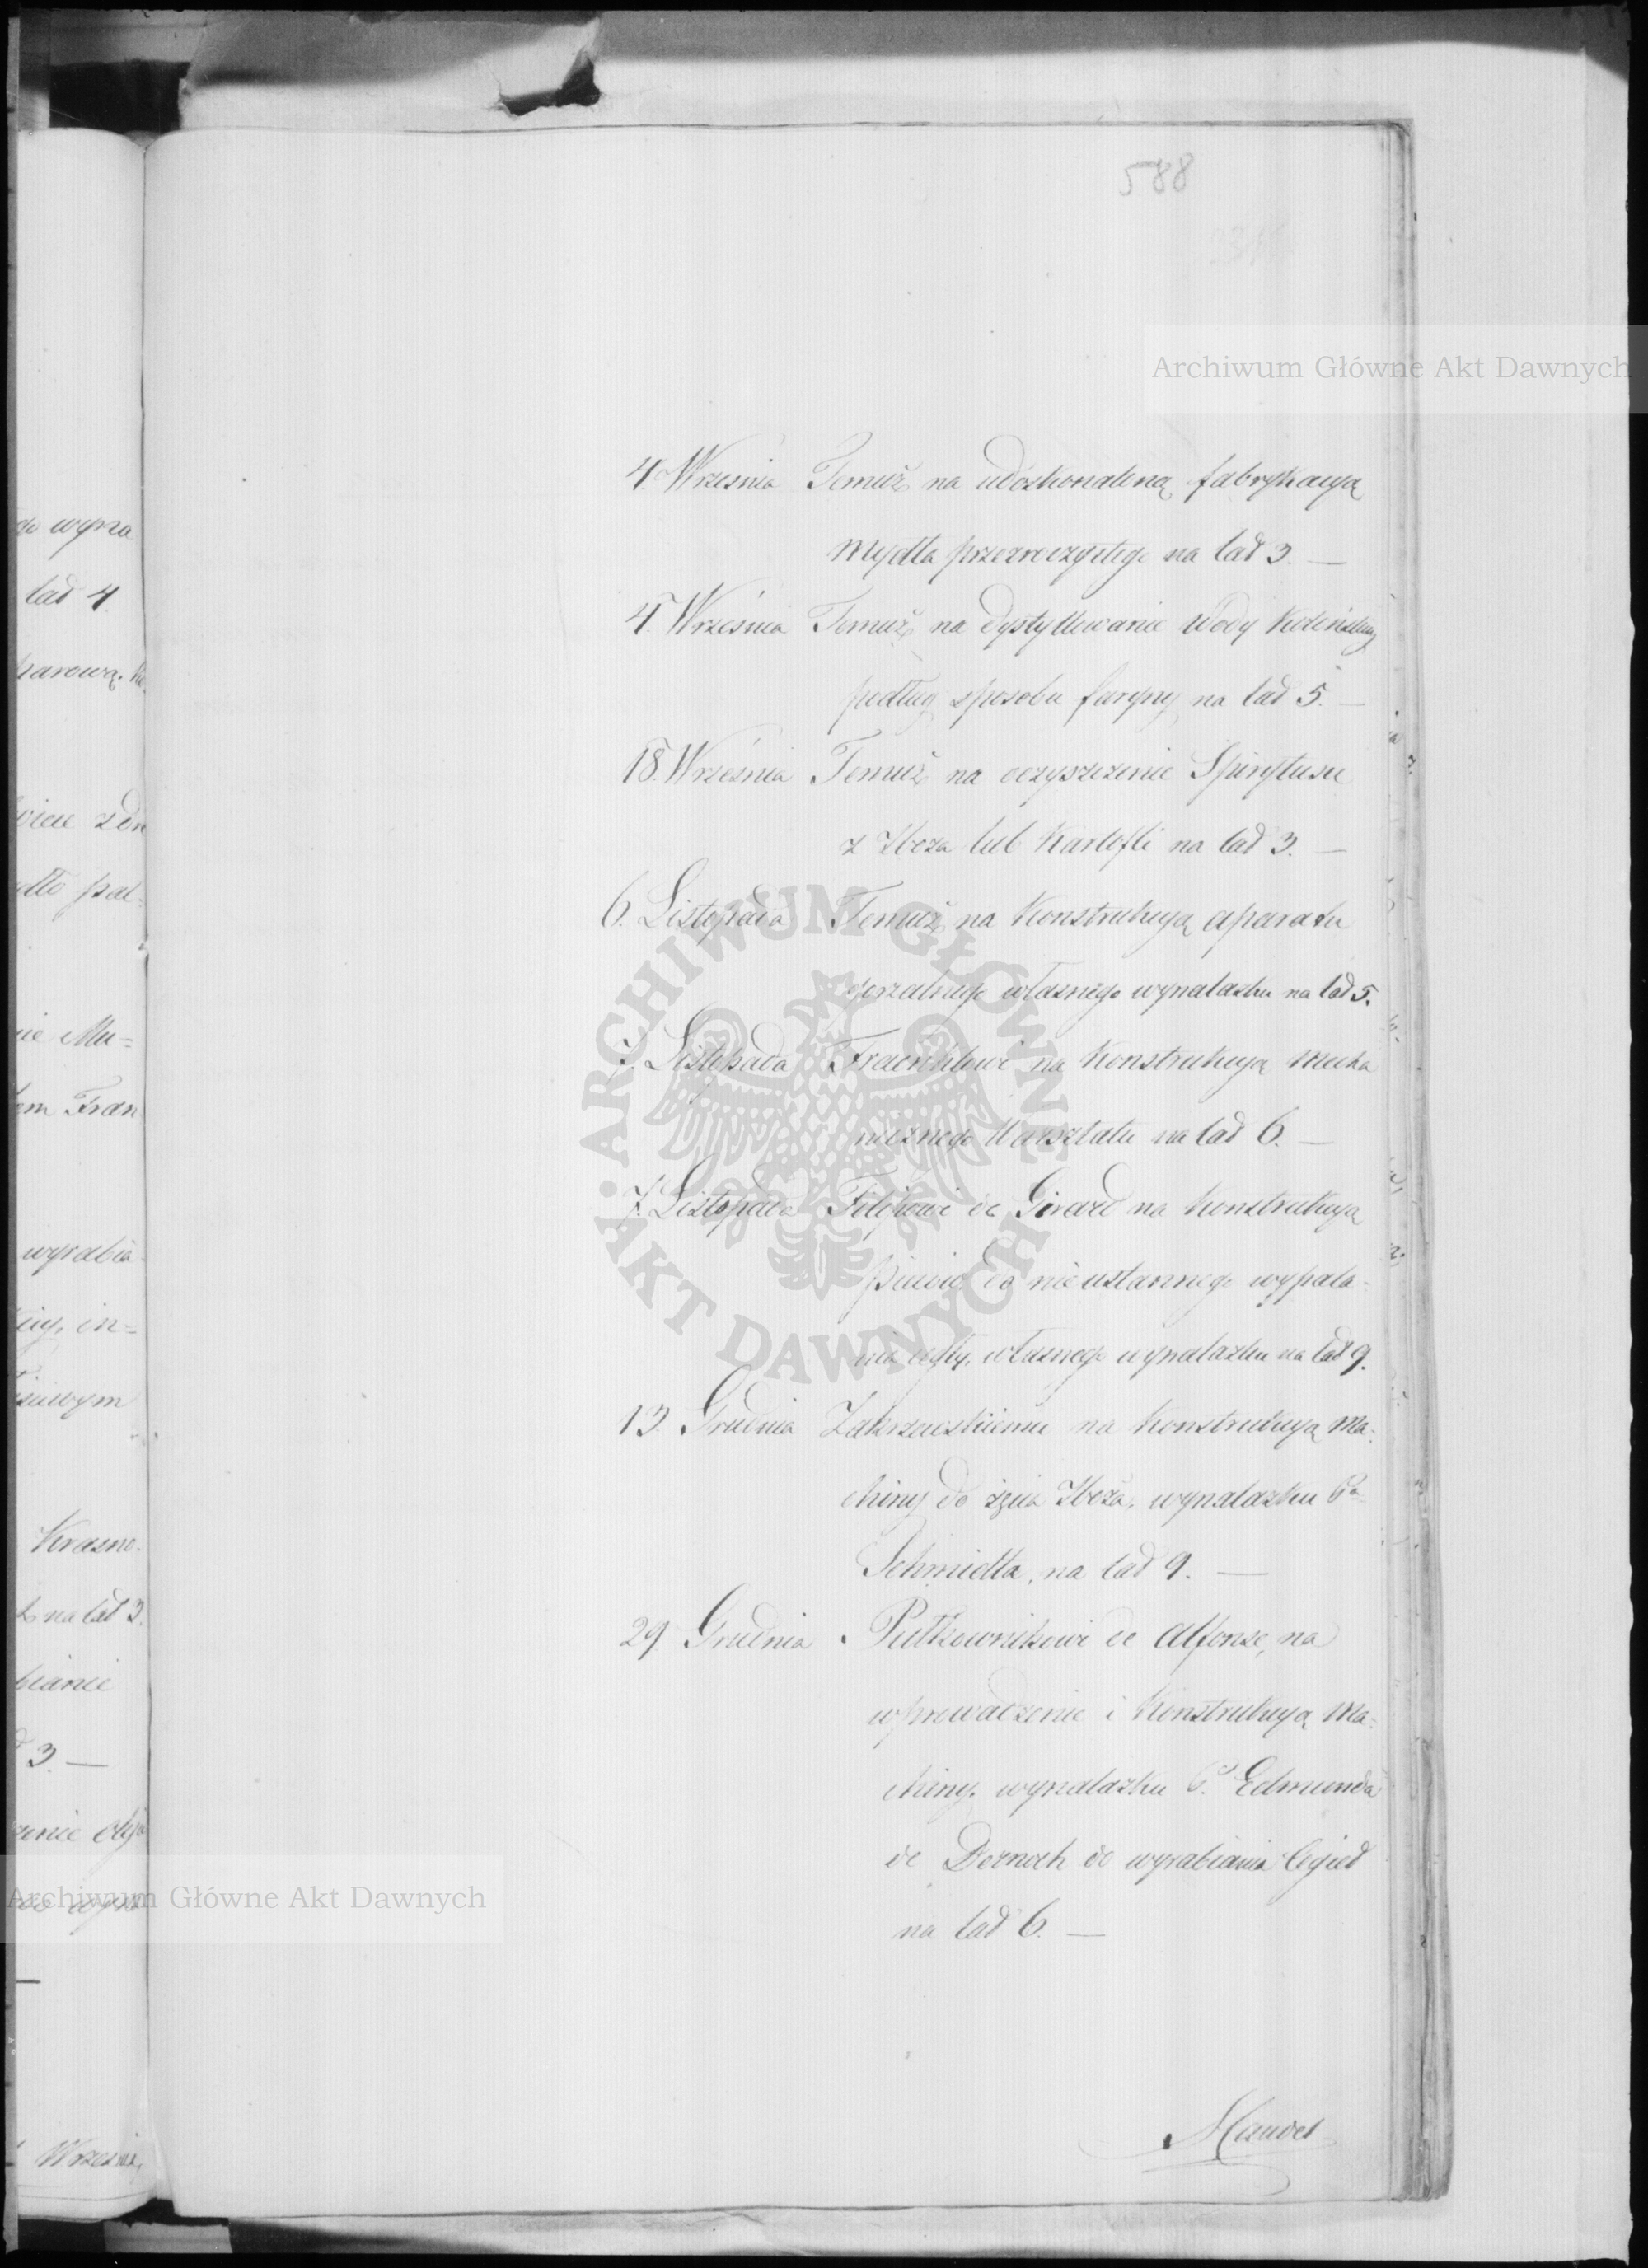 588
Archiwum Główne Akt Dawnych
4. Września Temuż na udoskonaloną fabrykacyą
mydła przezroczystego na lat 3. —
4. Września Temuż na dystyllowanie Wody Kolońskiey
podług sposobu faryny na lat 5. —
18. Września Temuż na oczyszczenie Spirytusu
z Zboża lub Kartofli na lat 3. —
6. Listopada Temuż na Konstrukcyą aparatu
gorzalnego własnego wynalazku na lat 5.
7. Listopada Fraenklowi na Konstrukcyą mecha
nicznego Warsztatu na lat 6. —
7. Listopada Filipowi de Girard na Konstrukcyą
pieców do nieustannego wypala-
nia cegły, własnego wynalazku na lat 9.
13. Grudnia Zakrzewskiemu na Konstrukcyą Ma-
chiny do żęcia Zboża, wynalazku
Schmidta, na lat 9. —
29. Grudnia Pułkownikowi de Alfonse, na
wprowadzenie i Konstrukcyą Ma-
chiny, wynalazku Edmunda
de do wyrabiania Cegieł
na lat 6. —
ARCHIWUM GŁÓWNE AKT DAWNYCH
go wyna
lat 4
parową.
dło pal-
nie Mu-
Fran
wyrabia
in=
Krasno-
na lat 3.
bianie
3. —
Archiwum Główne Akt Dawnych
Września